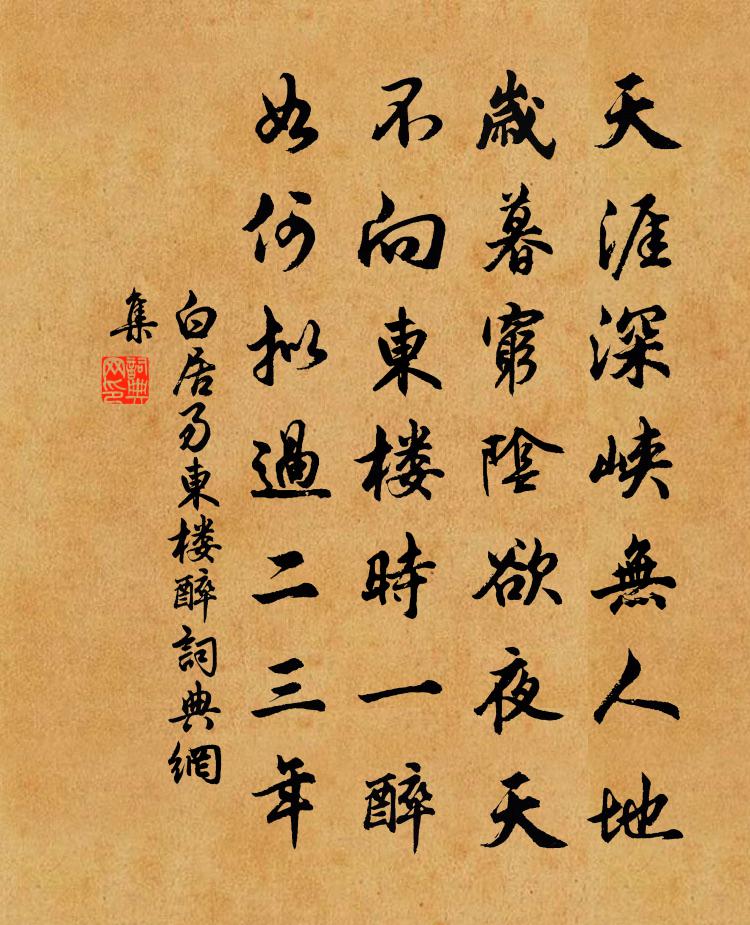 天涯深峽無人地
歲暮窮陰欲夜天
不向東楼時一醉
如何拟過二三年
白居易東楼醉詞典網
集
詞典网印